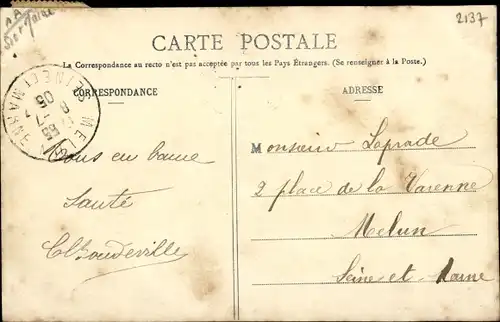 2137
CARTE POSTALE
La Correspondance au recto n'est pas acceptée par tous les Pays Étrangers. (Se renseigner à la Poste.)
CORRESPONDANCE
ADRESSE
MELUN
SEINE ET MARNE
Tous en bonne
Santé
Monsieur Laprade
2 place de la Varenne
Melun
Seine et Marne